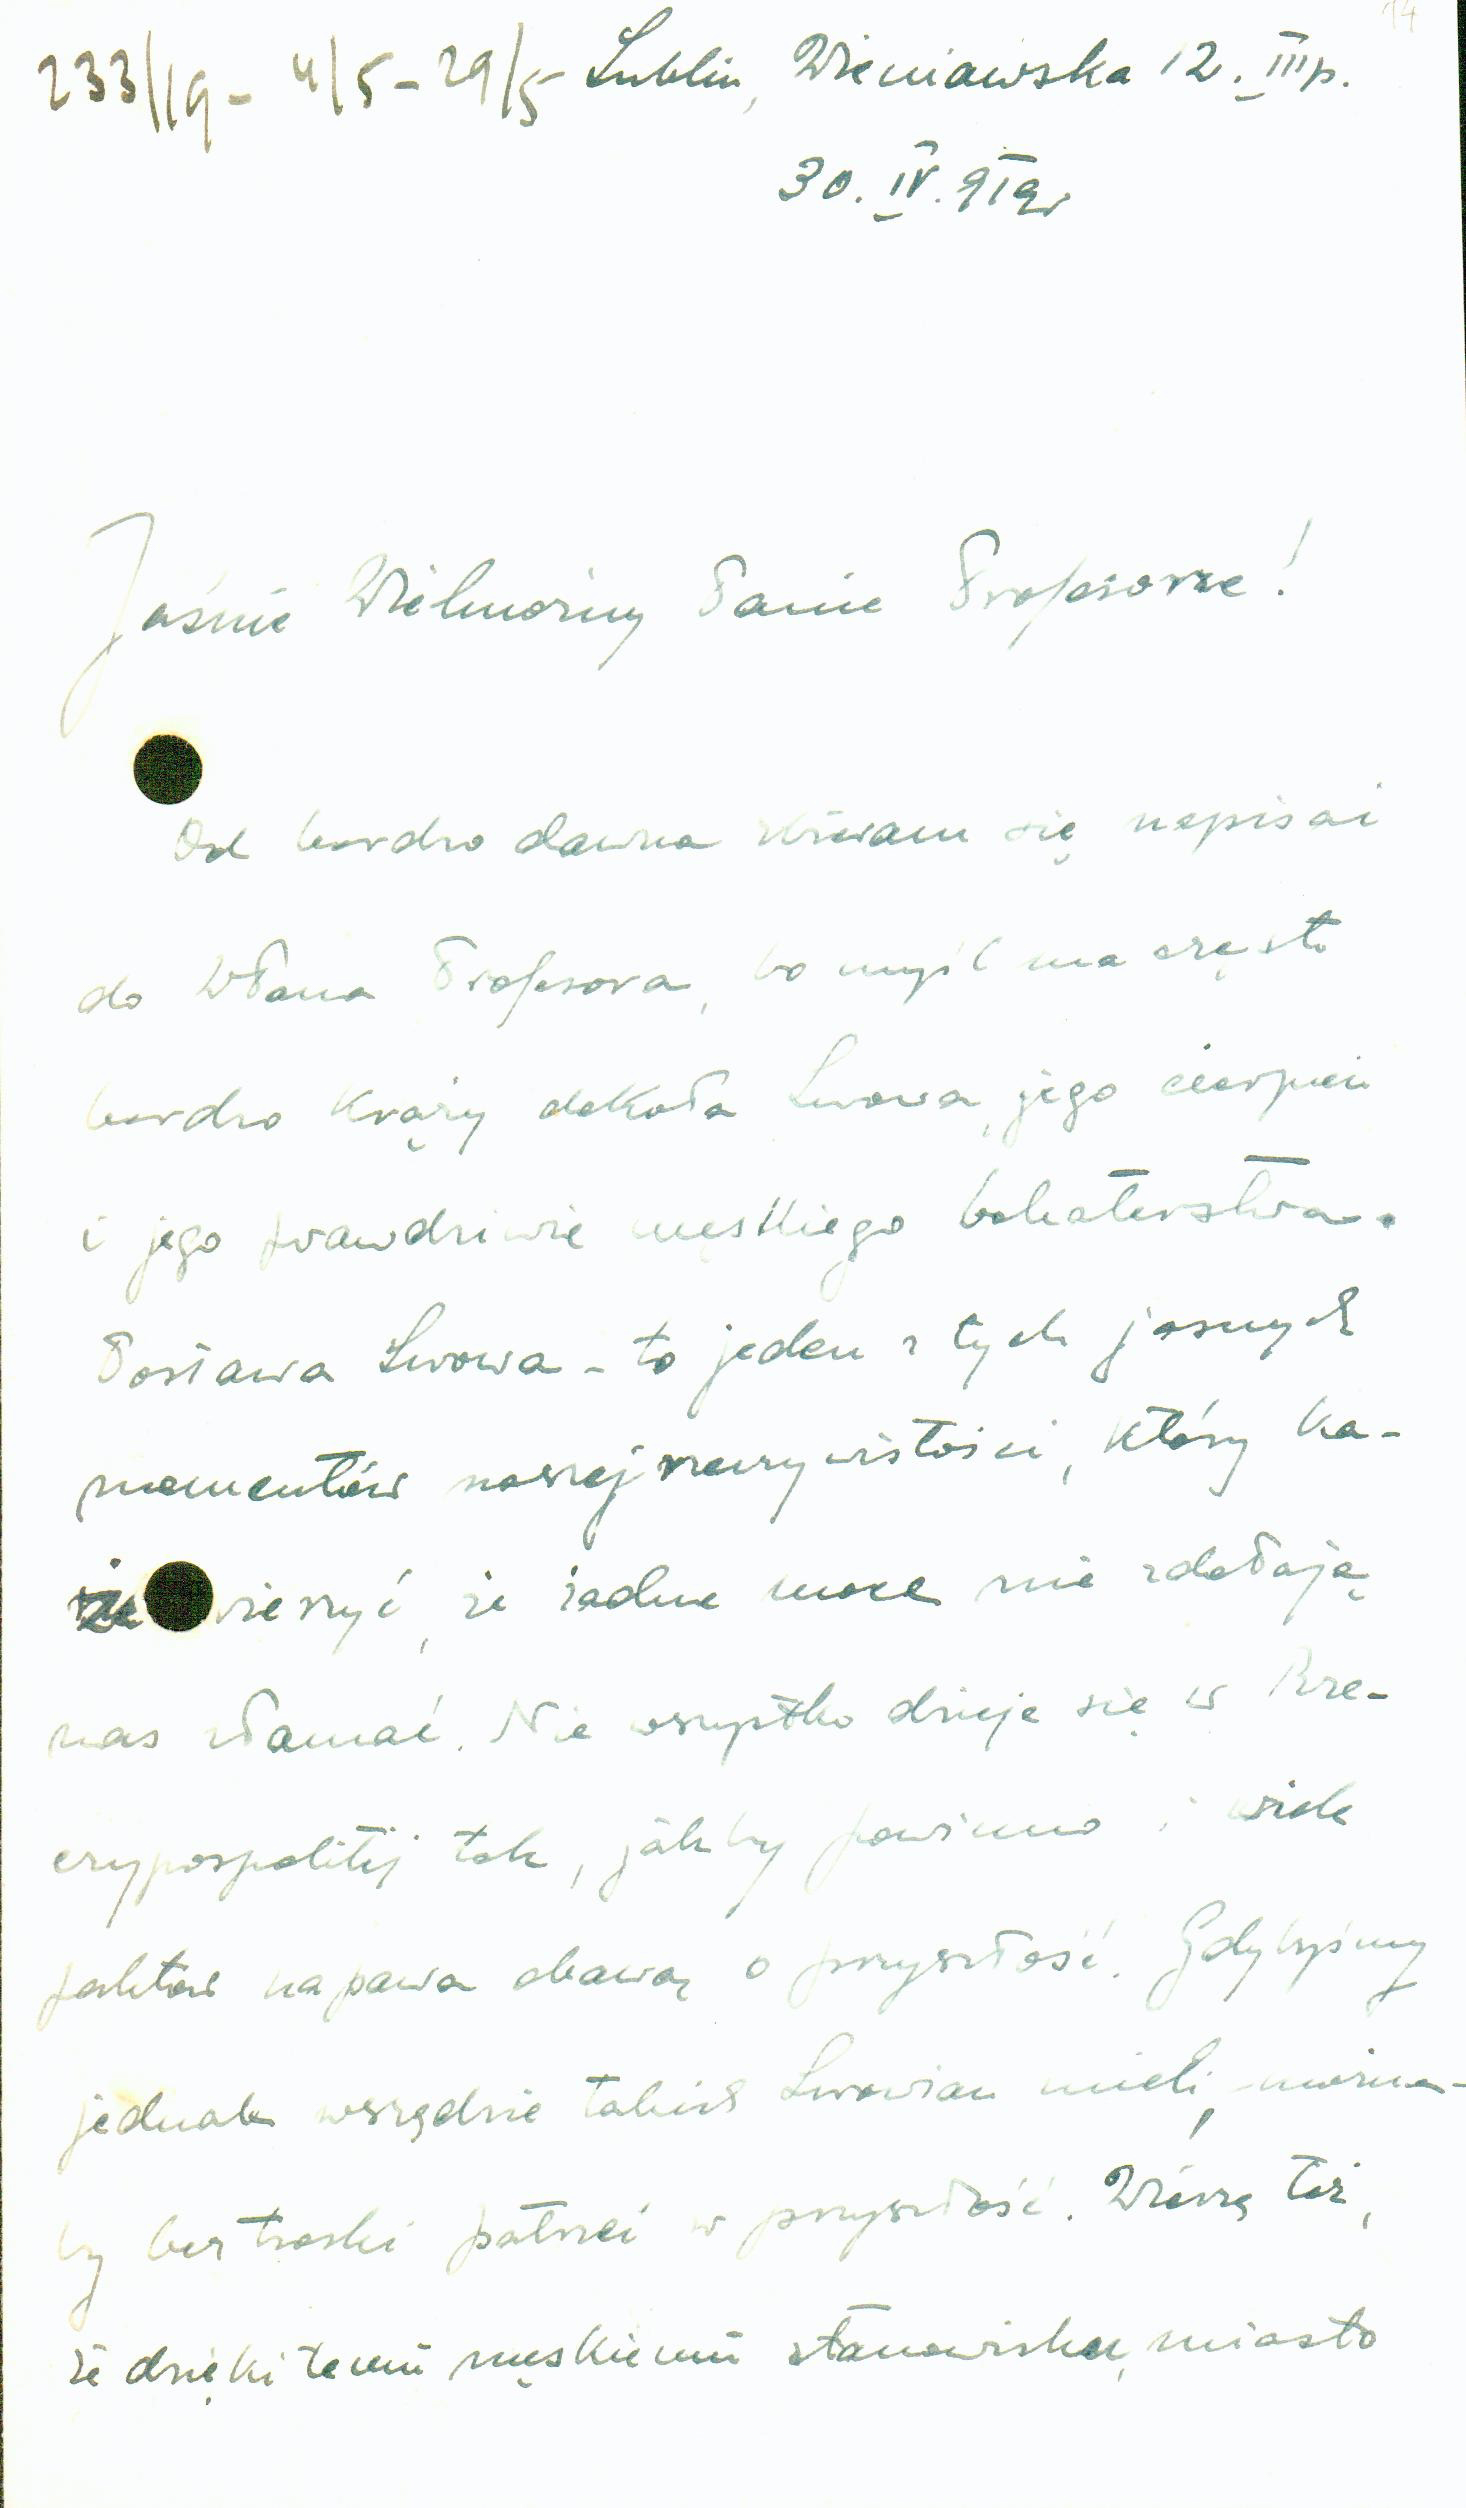 14
233/19 - 4/5 - 29/5 Lublin, Wieniawska 12. III p.
30. IV. 919
Jaśnie Wielmożny Panie Profesorze!
Od bardzo dawna zbieram się napisać
do WPana Profesora, bo myśl ma często
bardzo krąży dokoła Lwowa, jego cierpień
i jego prawdziwie męskiego bohaterstwa.
Postawa Lwowa - to jeden z tych jasnych
momentów naszej rzeczywistości, który ka-
że wierzyć, że żadne moce nie zdołają
nas złamać. Nie wszystko dzieje się w Rze-
czypospolitej tak, jakby powinno i wiele
faktów napawa obawą o przyszłość. Gdybyśmy
jednak wszędzie takich Lwowian mieli, można-
by bez troski patrzeć w przyszłość. Wierzę też,
że dzięki temu męskiemu stanowisku, miasto